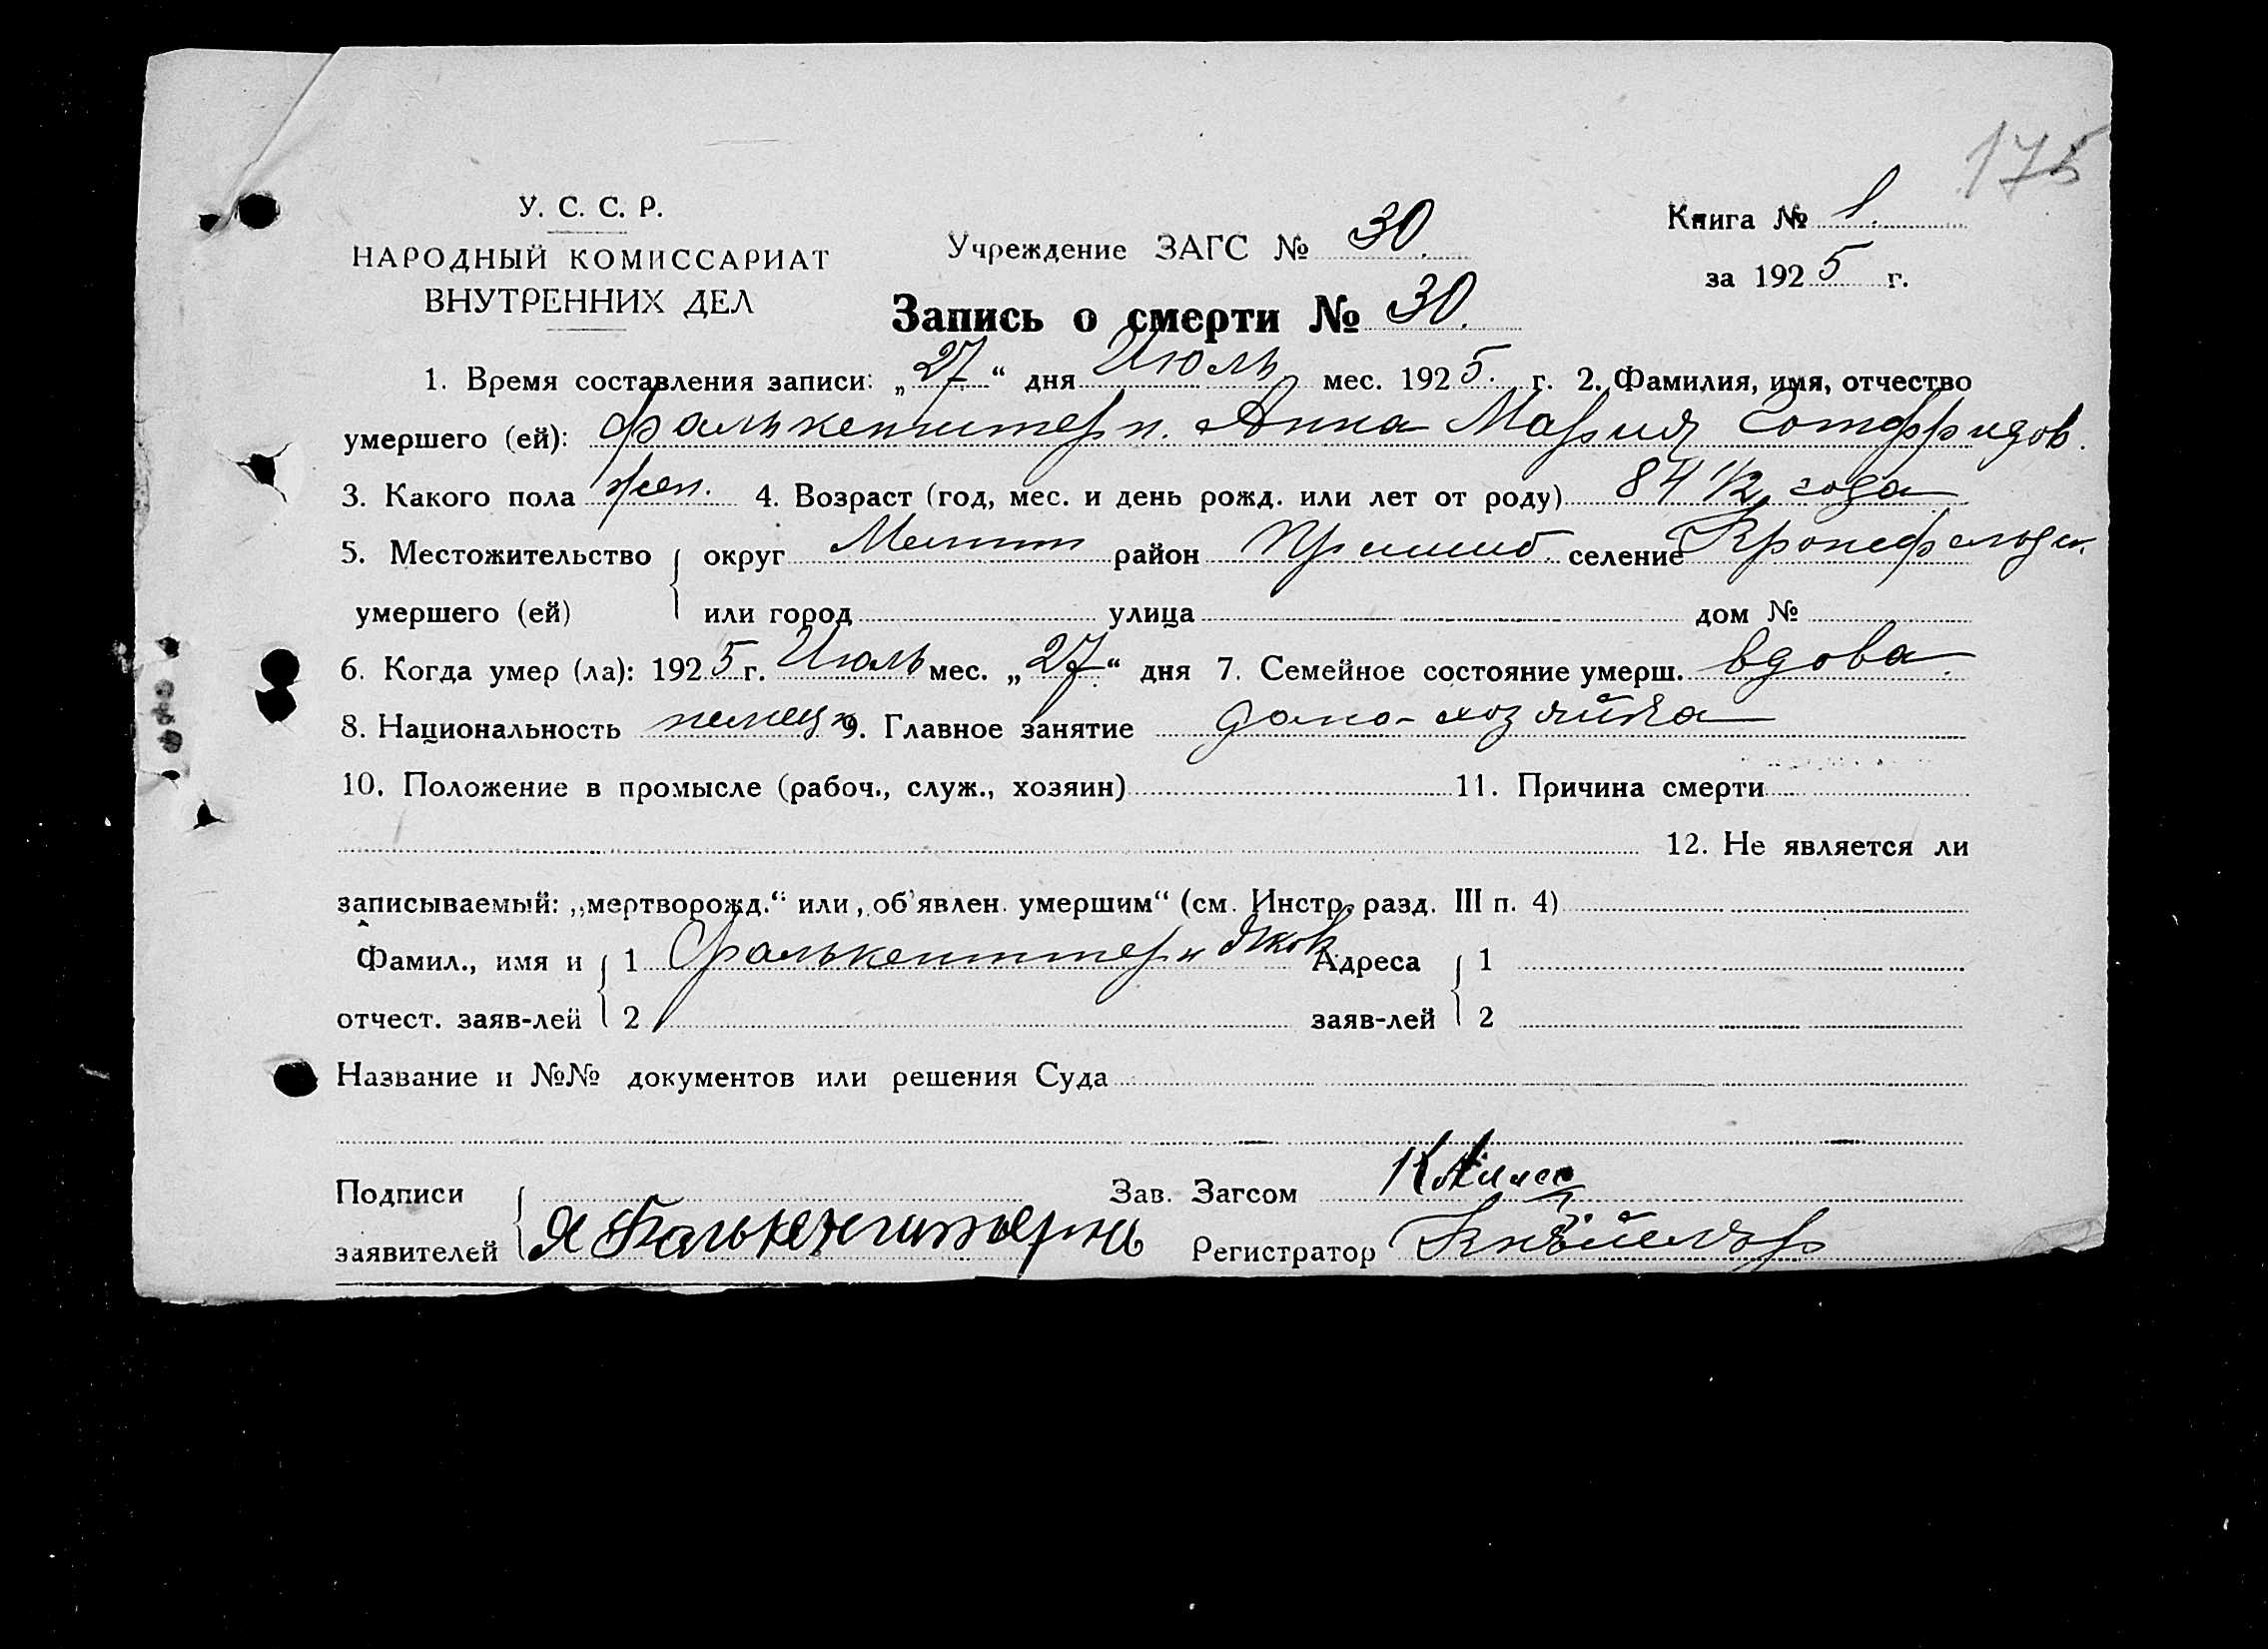 175
У. С. С. Р.
НАРОДНЫЙ КОМИССАРИАТ
ВНУТРЕННИХ ДЕЛ
Учреждение ЗАГС № 30.
Книга № 1.
за 1925 г.
Запись о смерти № 30.
1. Время составления записи: „27“ дня Июль мес. 1925. г. 2. Фамилия, имя, отчество
умершего (ей): Фалькенштерн. Анна Мария Готфридов.
3. Какого пола жен. 4. Возраст (год, мес. и день рожд. или лет от роду) 84 1/2 года
5. Местожительство округ Мелит район Пришиб. селение
умершего (ей) или город улица дом №
6. Когда умер (ла): 1925 г. Июль мес. „27“ дня 7. Семейное состояние умерш. вдова.
8. Национальность немец 9. Главное занятие домо-хозяйка
10. Положение в промысле (рабоч., служ., хозяин) 11. Причина смерти
12. Не является ли
записываемый: „мертворожд.“ или „об'явлен. умершим“ (см. Инстр. разд. III п. 4)
Фамил., имя и 1 Фалькенштерн Яков Адреса 1
отчест. заяв-лей 2 заяв-лей 2
Название и №№ документов или решения Суда
Подписи Зав. Загсом
заявителей Я Фалькенштернъ Регистратор